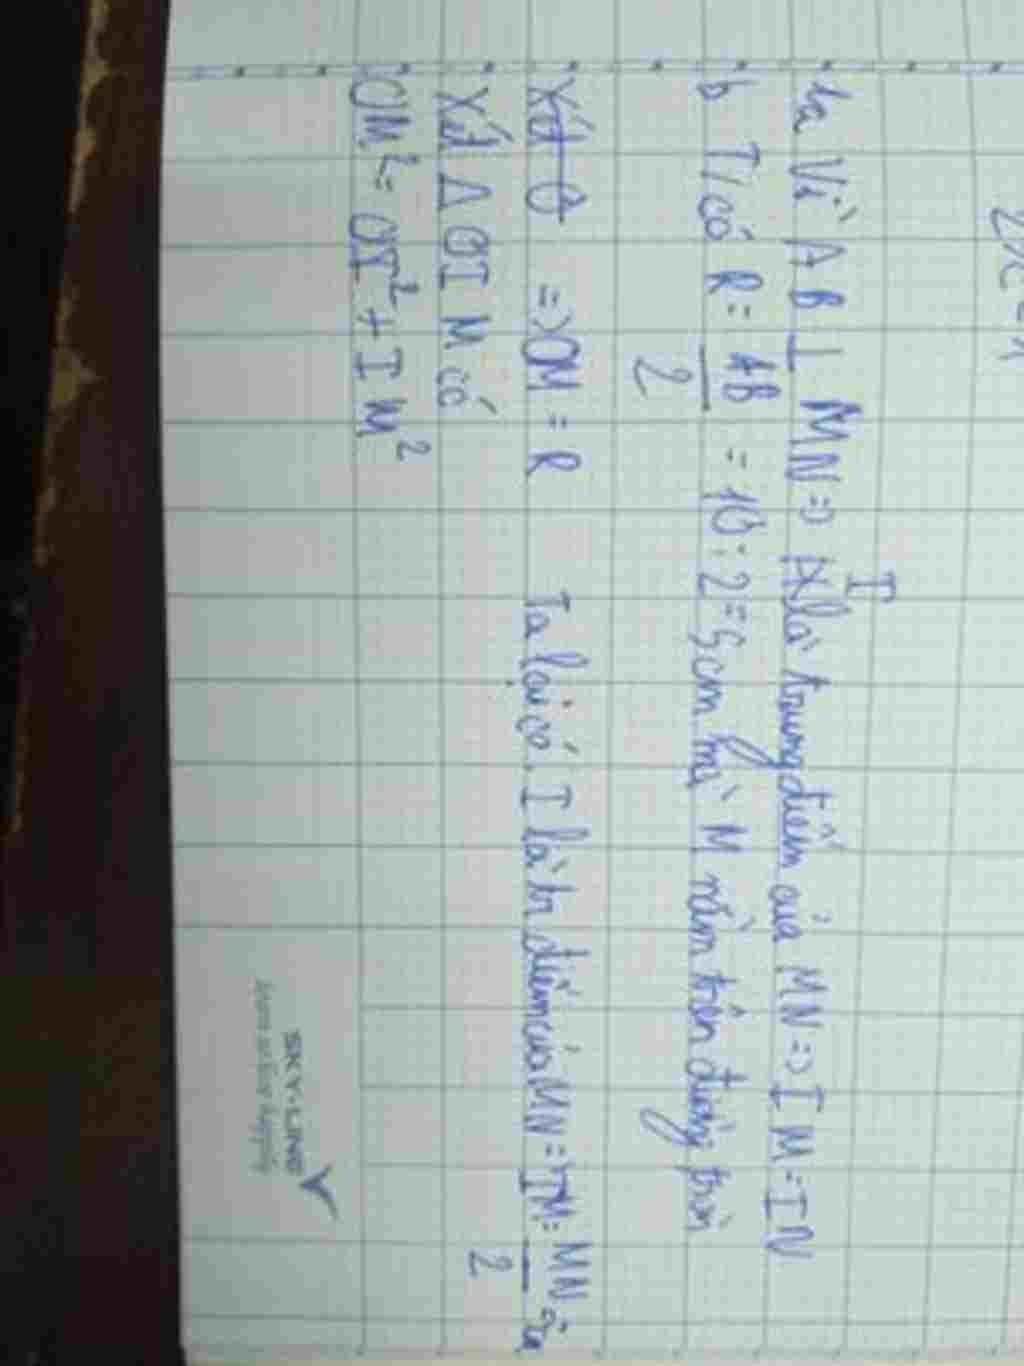 2x - 1
1a Vì AB ⊥ MN => I là trung điểm của MN => IM = IN
b T/có R = AB/2 = 10 : 2 = 5cm mà M nằm trên đường tròn
=> OM = R Ta lại có. I là tr điểm của MN = IM = MN/2 =
Xét Δ OIM có
OM² = OI² + IM²
SKY-LINE